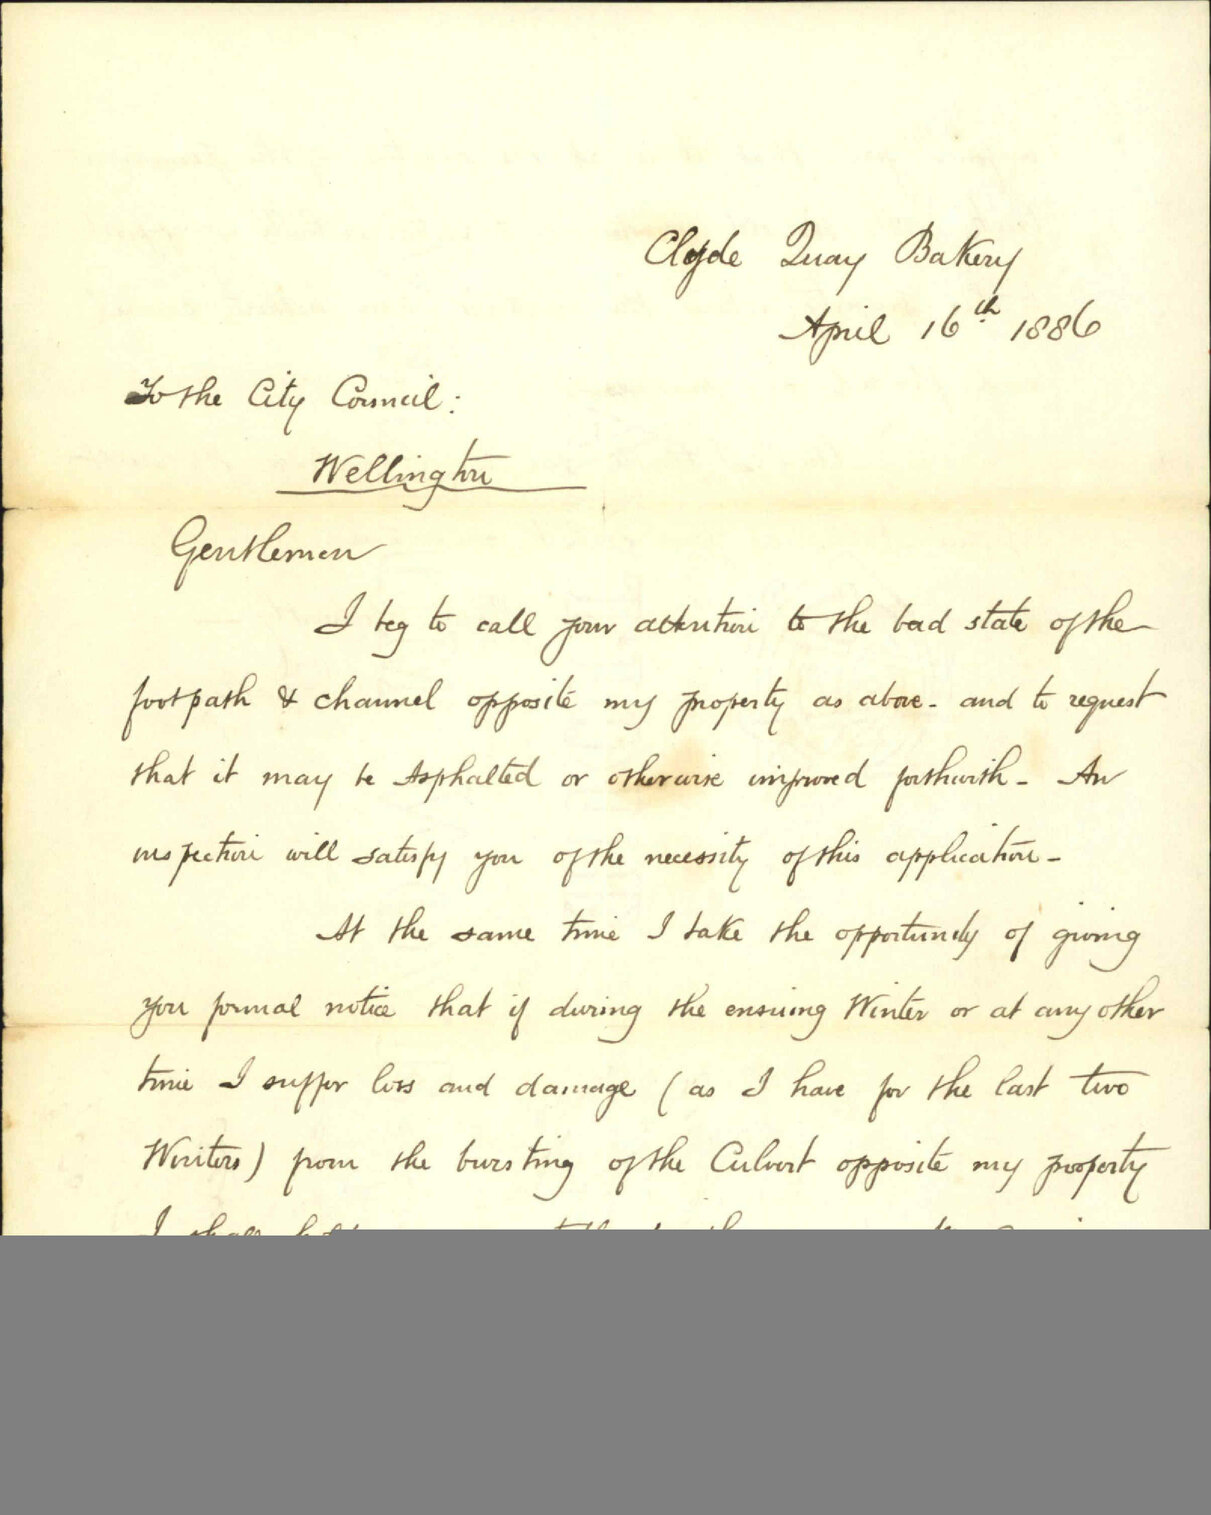 Clyde Quay Bakery
April 16th 1886
To the City Council:
Wellington
Gentlemen
I beg to call your attention to the bad state of the
footpath & channel opposite my property as above - and to request
that it may be Asphalted or otherwise improved forthwith - An
inspection will satisfy you of the necessity of this application -
At the same time I take the opportunity of giving
you formal notice that if during the ensuing Winter or at any other
time I suffer loss and damage (as I have for the last two
Winters) from the bursting of the Culvert opposite my property
I shall